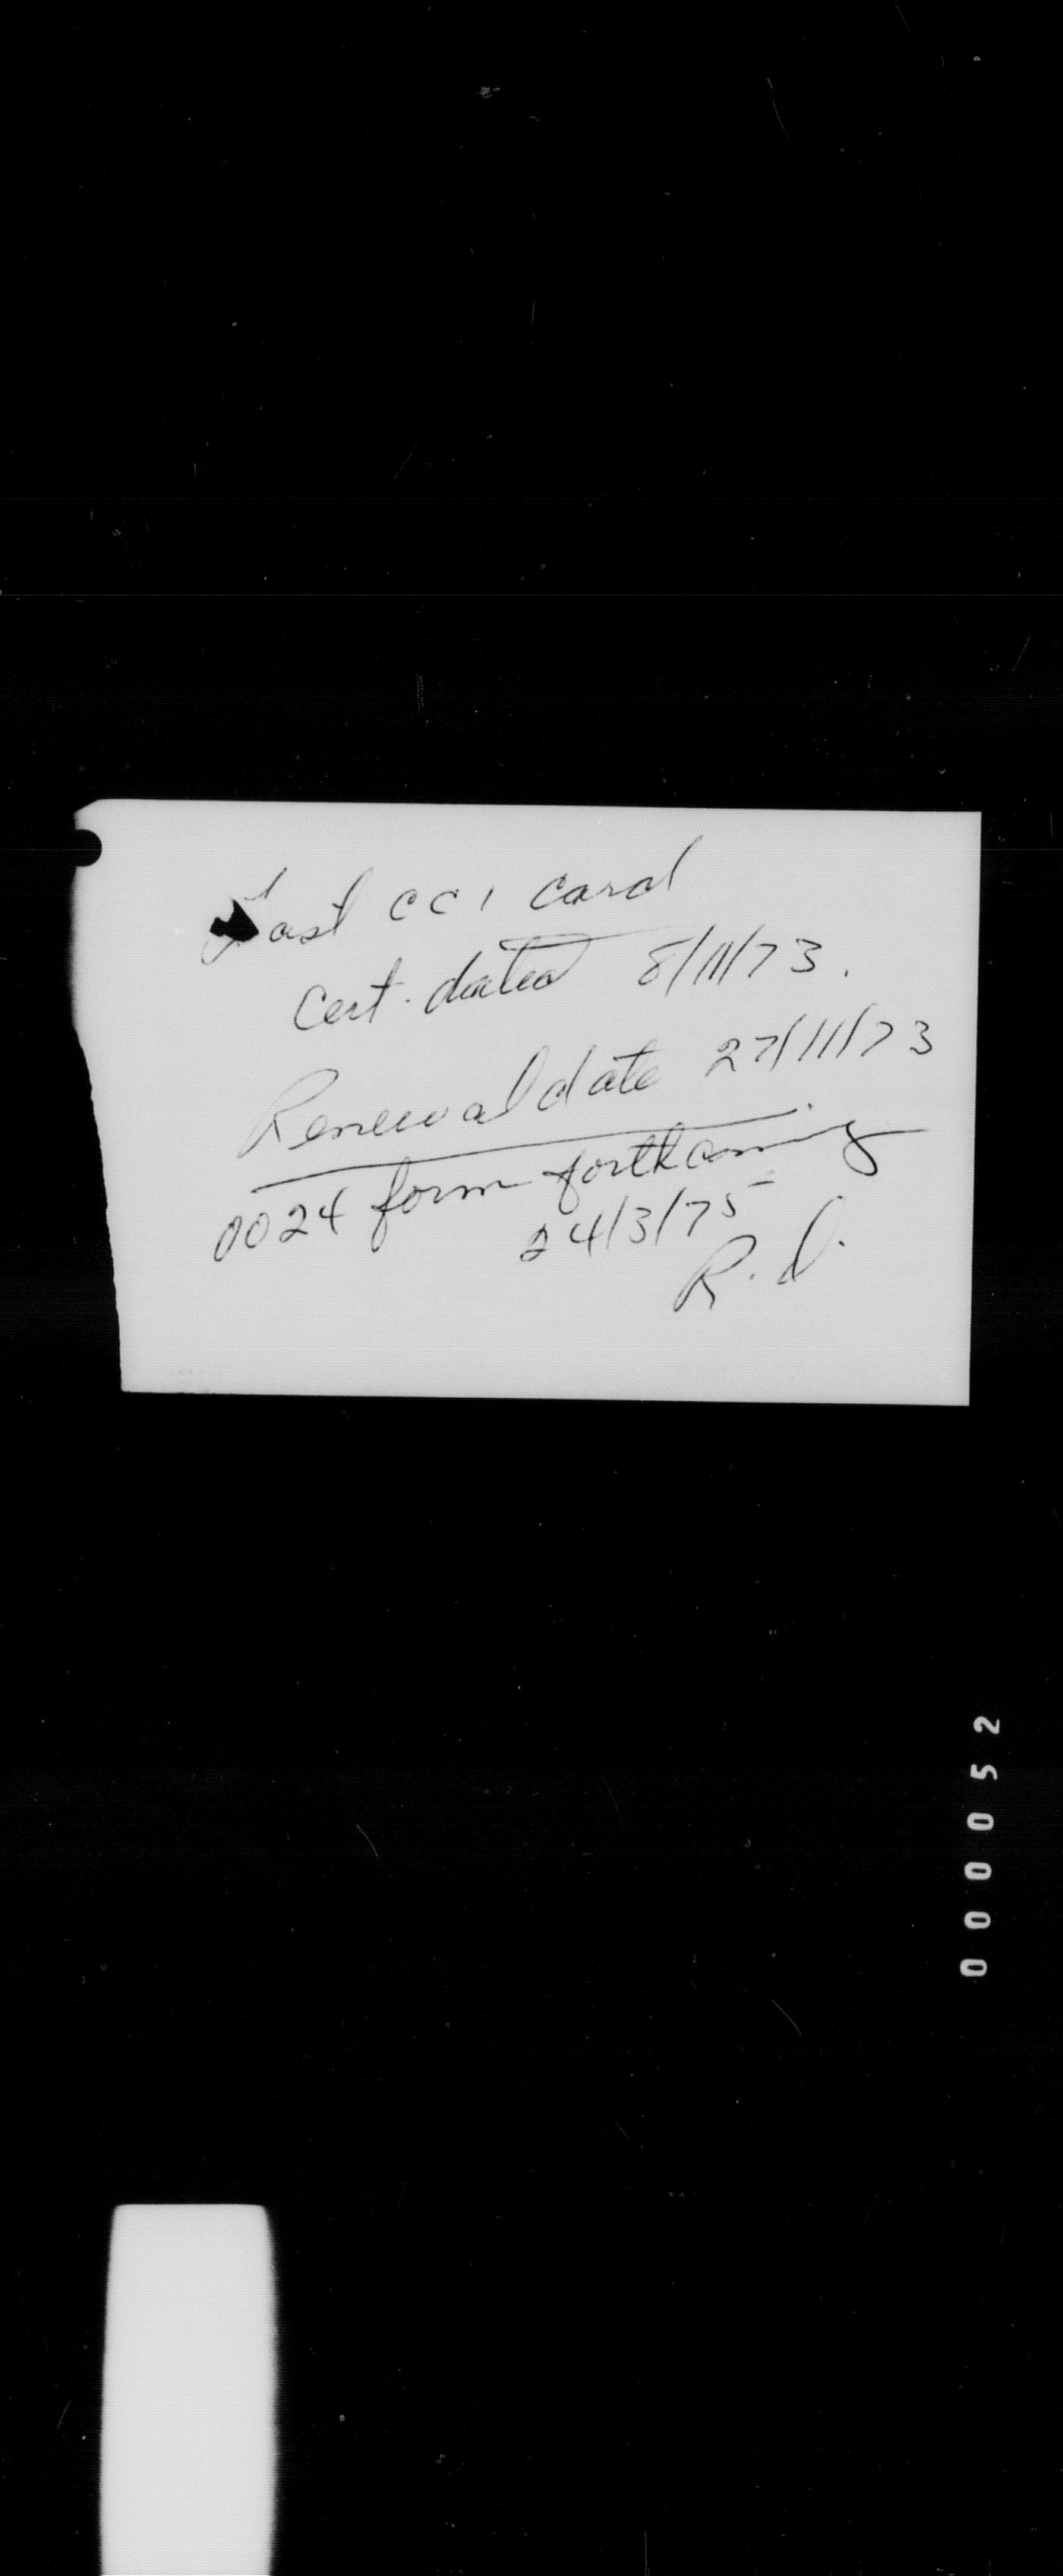 Last CC1 card
Cert. dated 8/11/73.
Renewal date 27/11/73
0024 form forthcoming
24/3/75
R.D.
000052